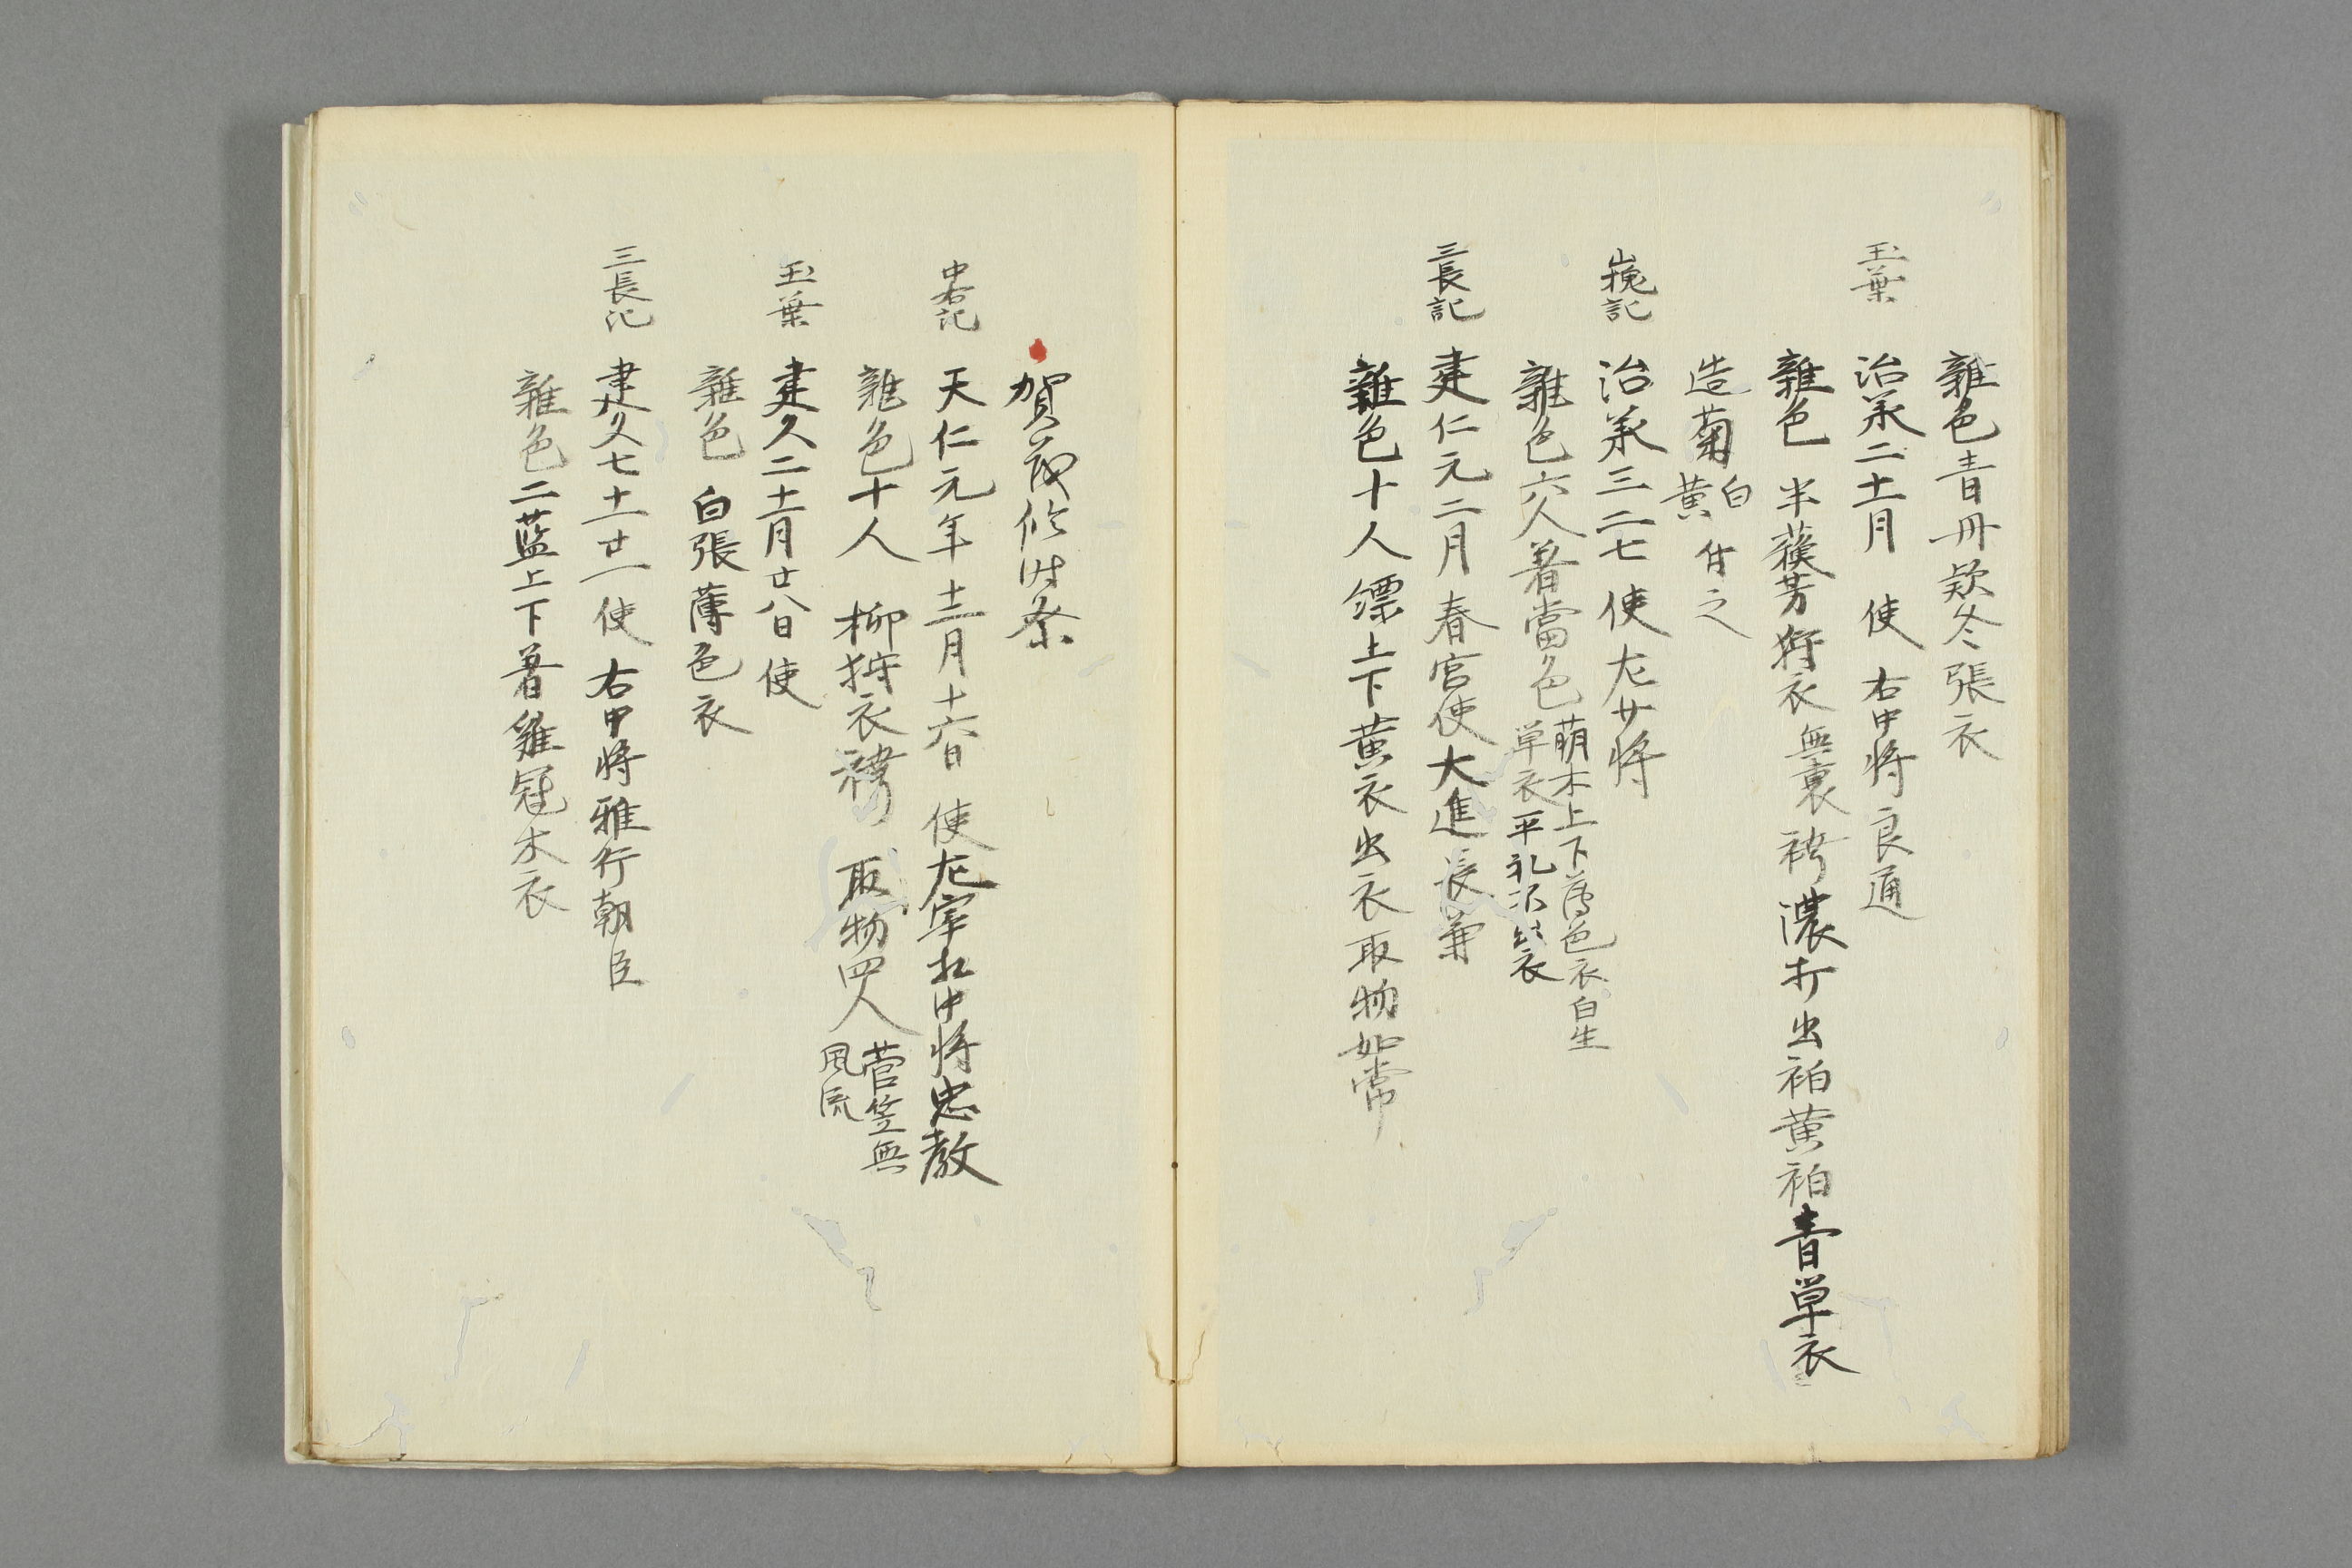 雜色青丹欵冬張衣
玉葉 治承二十一月 使 右中将良通
雜色 半蘓芳狩衣無裏袴濃打出袙黄袙青單衣
造菊 白黄 付之
山槐記 治承三二七 使左少将
雜色六人著當色 萌木上下薄色衣白生
單衣平礼不出衣
三長記 建仁元二月春宮使大進長兼
雜色十人縹上下黄衣出衣取物如常
賀茂臨時祭
中右記 天仁元年十二月十六日 使左宰相中将忠教
雜色十人 柳狩衣袴 取物四人 菅笠無
風流
玉葉 建久二十二月廿八日 使
雜色 白張薄色衣
三長記 建久七十一廿一使 右中将雅行朝臣
雜色二藍上下著雞冠木衣